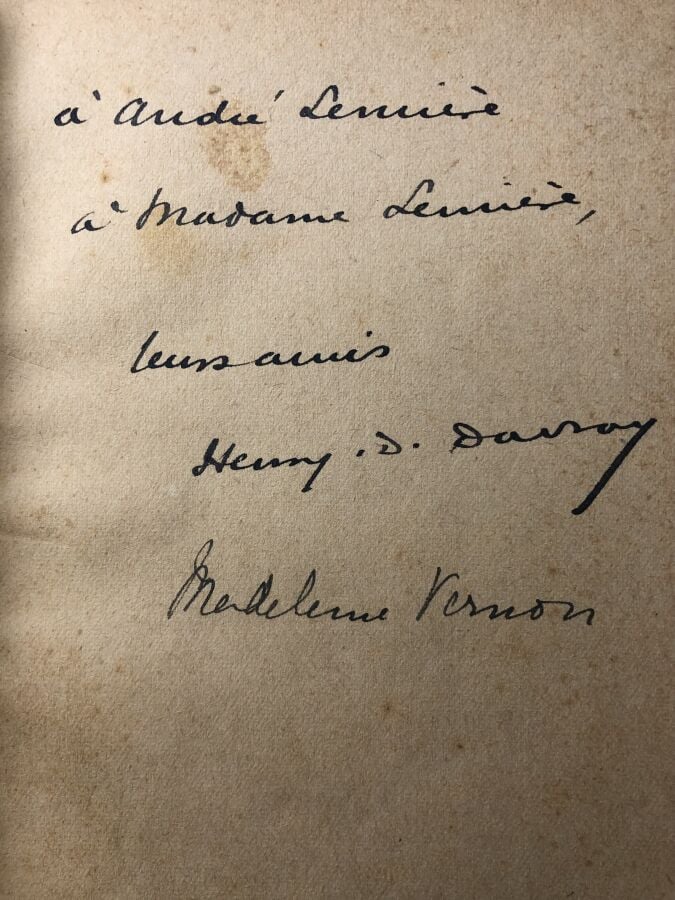 à André Lemière
à Madame Lemière,
leurs amis
Henry . D. Davray
Madeleine Vernon